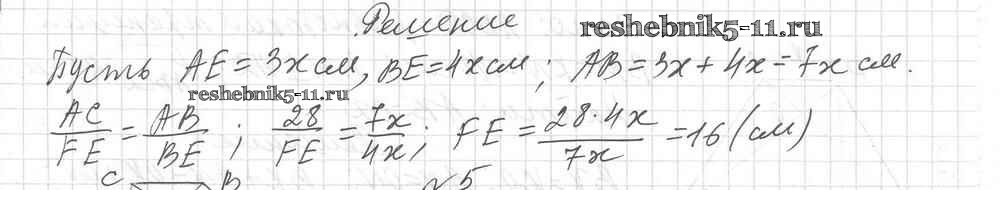 Решение
reshebnik5-11.ru
Пусть AE = 3x см, BE = 4x см; AB = 3x + 4x = 7x см.
reshebnik5-11.ru
AC/FE = AB/BE; 28/FE = 7x/4x; FE = 28·4x/7x = 16 (см)
C B №5